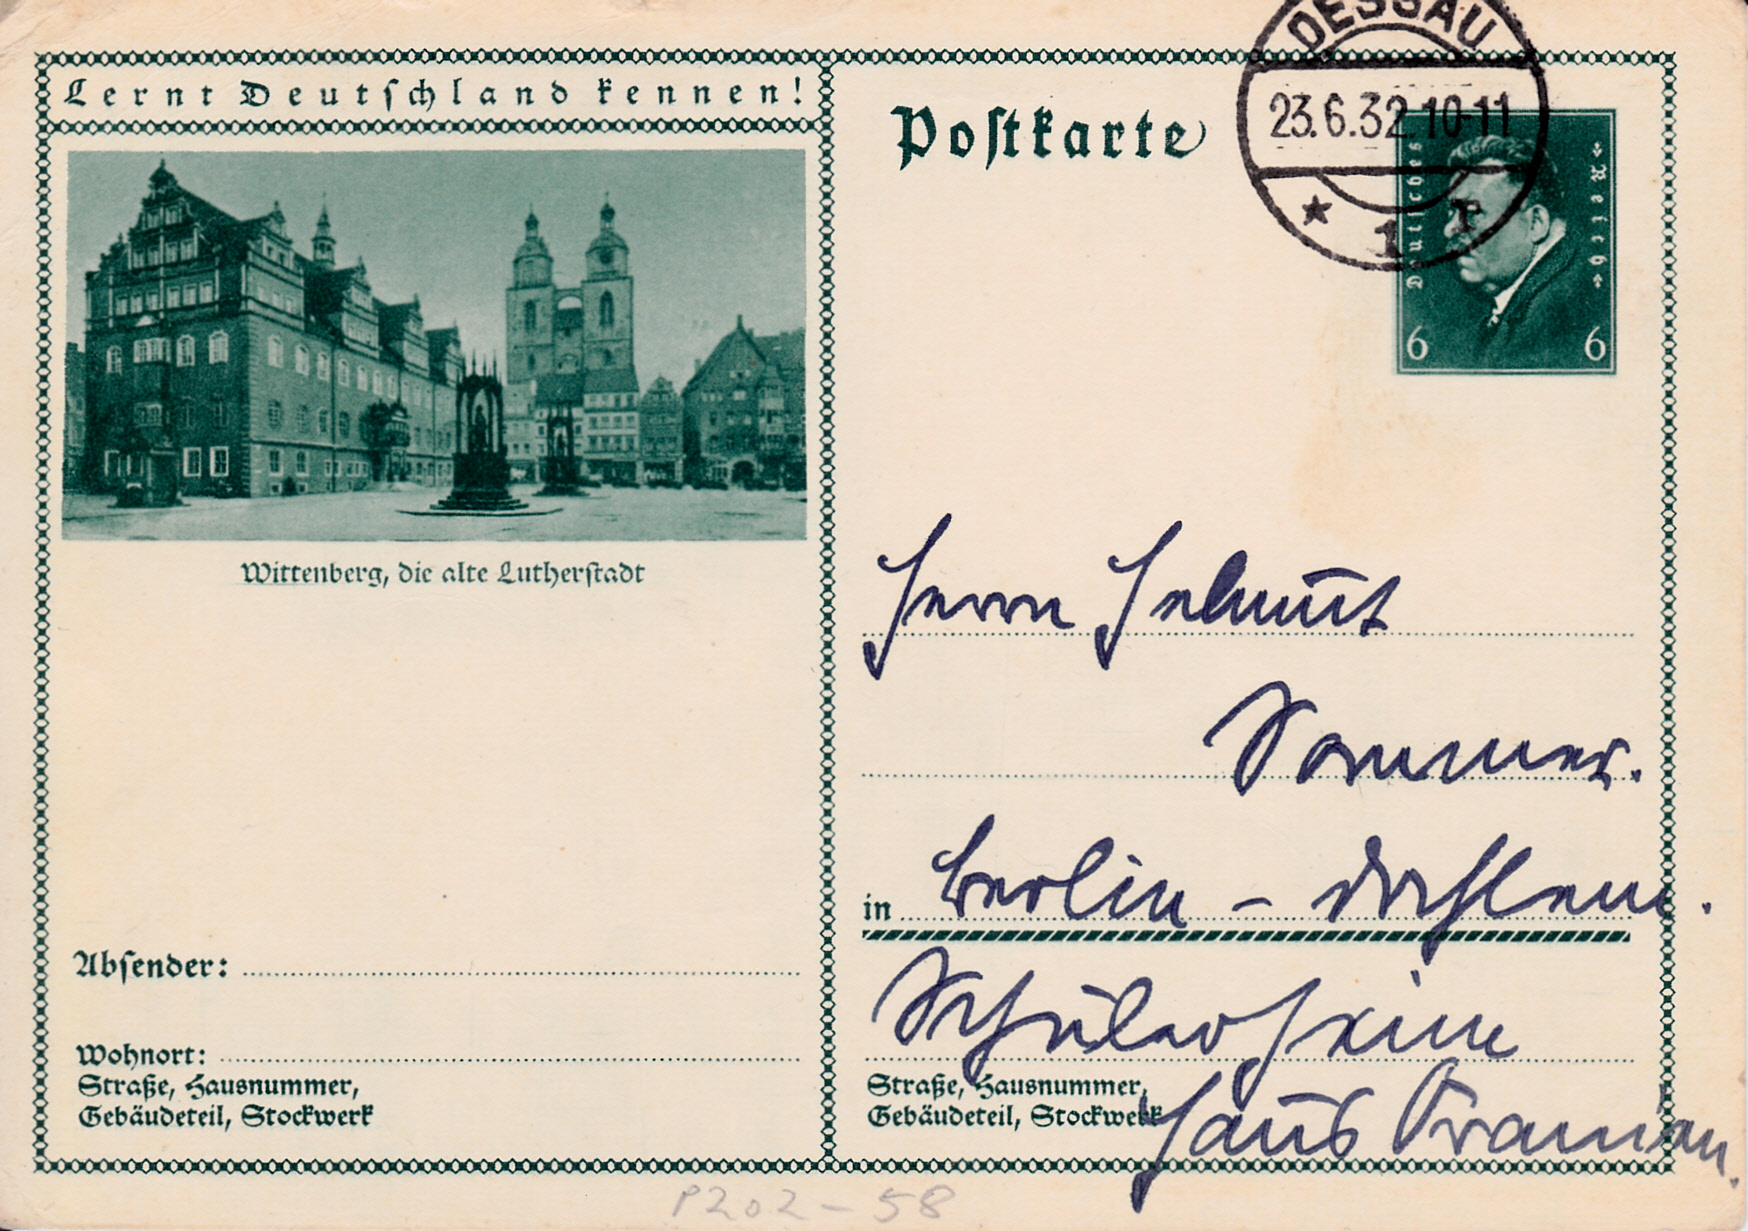 Lernt Deutschland kennen!
Wittenberg, die alte Lutherstadt
Absender:
Wohnort:
Straße, Hausnummer,
Gebäudeteil, Stockwerk
Postkarte
DESSAU
23.6.32.10-11
* 1 r
Deutsches Reich
6 6
Herrn Helmut
Sommer.
in Berlin - Dahlem.
Schülerheim
Straße, Hausnummer,
Gebäudeteil, Stockwerk
Haus
P202-58